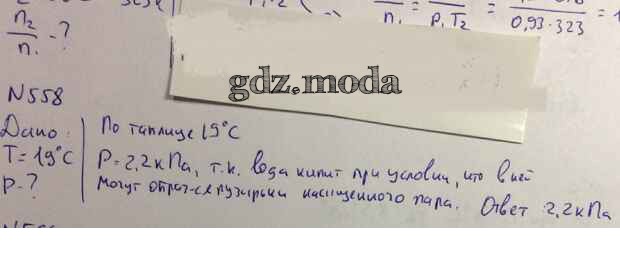 n₂/n₁ - ?
n₁ = P₁T₂ = 0,93·323 =
gdz.moda
N558
Дано: По таблице 19°C
T=19°C P=2,2кПа, т.к. вода кипит при условии, что в ней
p-? могут образ-ся пузырьки насыщенного пара. Ответ 2,2кПа